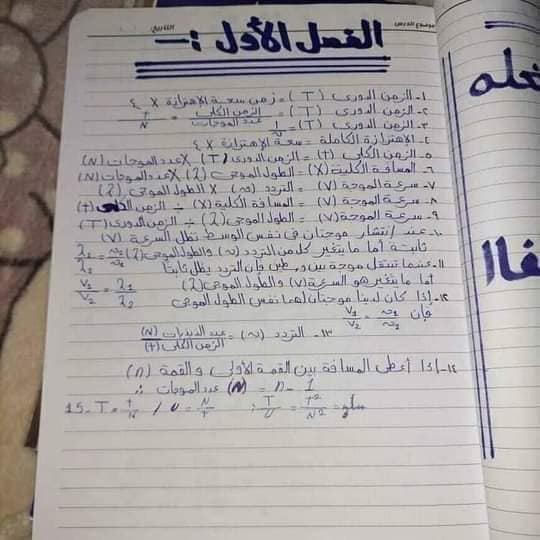 موضوع الدرس
التاريخ
الفصل الأول :-
١- الزمن الدورى (T) = زمن سعة الإهتزازة X ٤
٢- الزمن الدورى (T) = الزمن الكلى / عدد الموجات = t / N
٣- الزمن الدورى (T) = 1 / ν
٤- الإهتزازة الكاملة = سعة الإهتزازة X ٤
٥- الزمن الكلى (t) = الزمن الدورى (T) X عدد الموجات (N)
٦- المسافة الكلية (X) = الطول الموجى (λ) X عدد الموجات (N)
٧- سرعة الموجة (V) = التردد (ν) X الطول الموجى (λ)
٨- سرعة الموجة (V) = المسافة الكلية (X) ÷ الزمن الكلى (t)
٩- سرعة الموجة (V) = الطول الموجى (λ) ÷ الزمن الدورى (T)
١٠- عند إنتشار موجتان فى نفس الوسط تظل السرعة (V)
ثابتة أما ما يتغير كل من التردد (ν) والطول الموجى (λ) ν2 / ν1 = λ1 / λ2
١١- عندما تنتقل موجة بين وسطين فإن التردد يظل ثابتاً
أما ما يتغير هو السرعة (V) والطول الموجى (λ) V1 / V2 = λ1 / λ2
١٢- إذا كان لدينا موجتان لهما نفس الطول الموجى
فإن V1 / V2 = ν1 / ν2
١٣- التردد (ν) = عدد الذبذبات (N) / الزمن الكلى (t)
١٤- إذا أعطى المسافة بين القمة الأولى والقمة (n)
∴ عدد الموجات (N) = n - 1
15- T = t / N / υ = N / t ∴ T / υ = t² / N² =